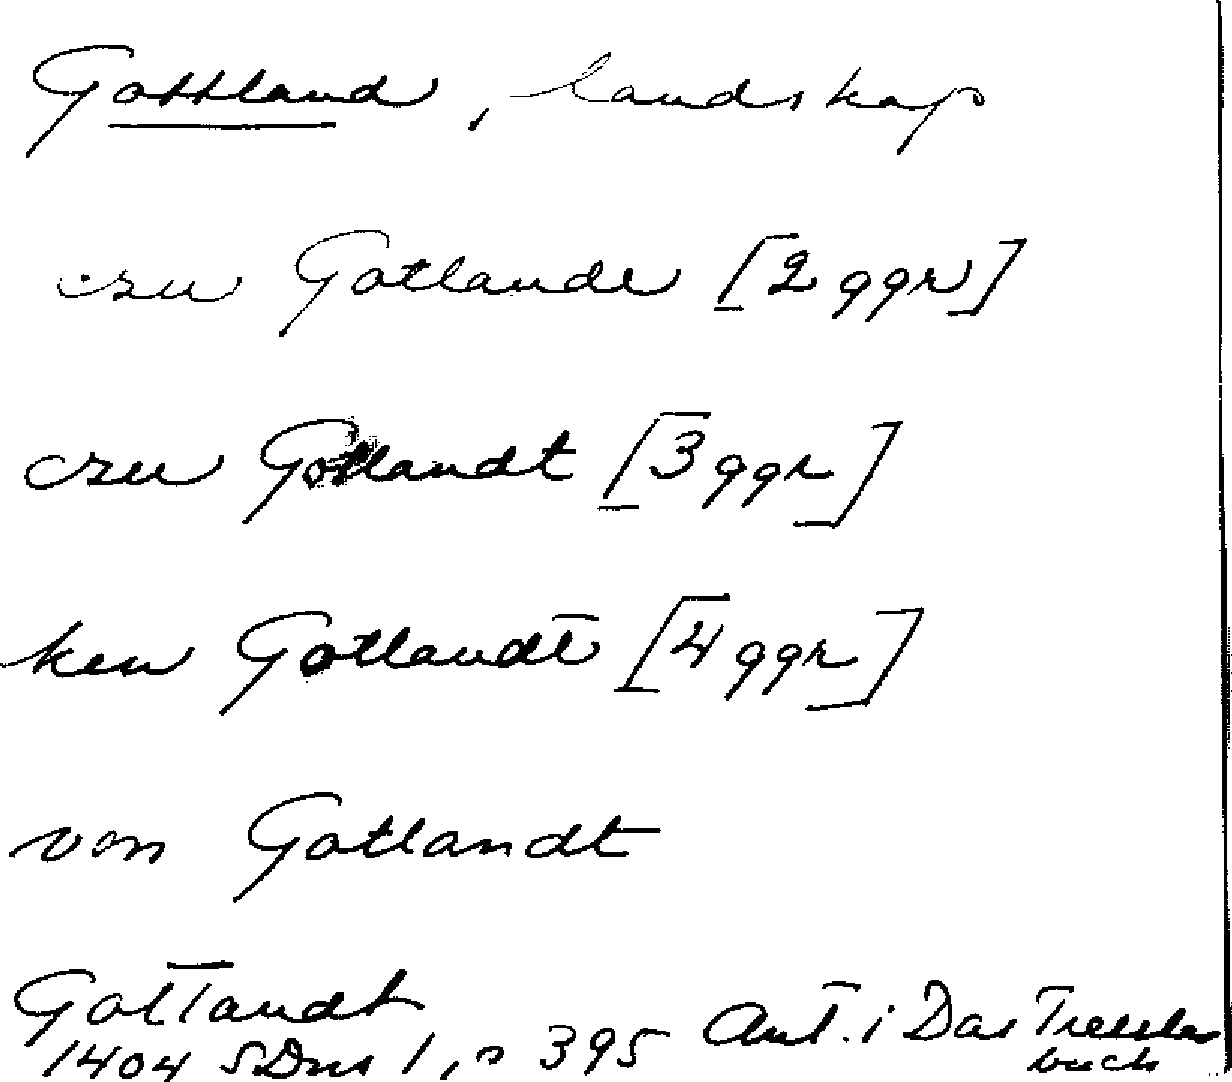 Gottland, landskap
czu Gotlande [2 ggr]
czu Gotlandt [3 ggr]
ken Gotlandt [4 ggr]
von Gotlandt
Gotlandt
1404 SDns 1, n 395 Ant. i Das Tressler
buch